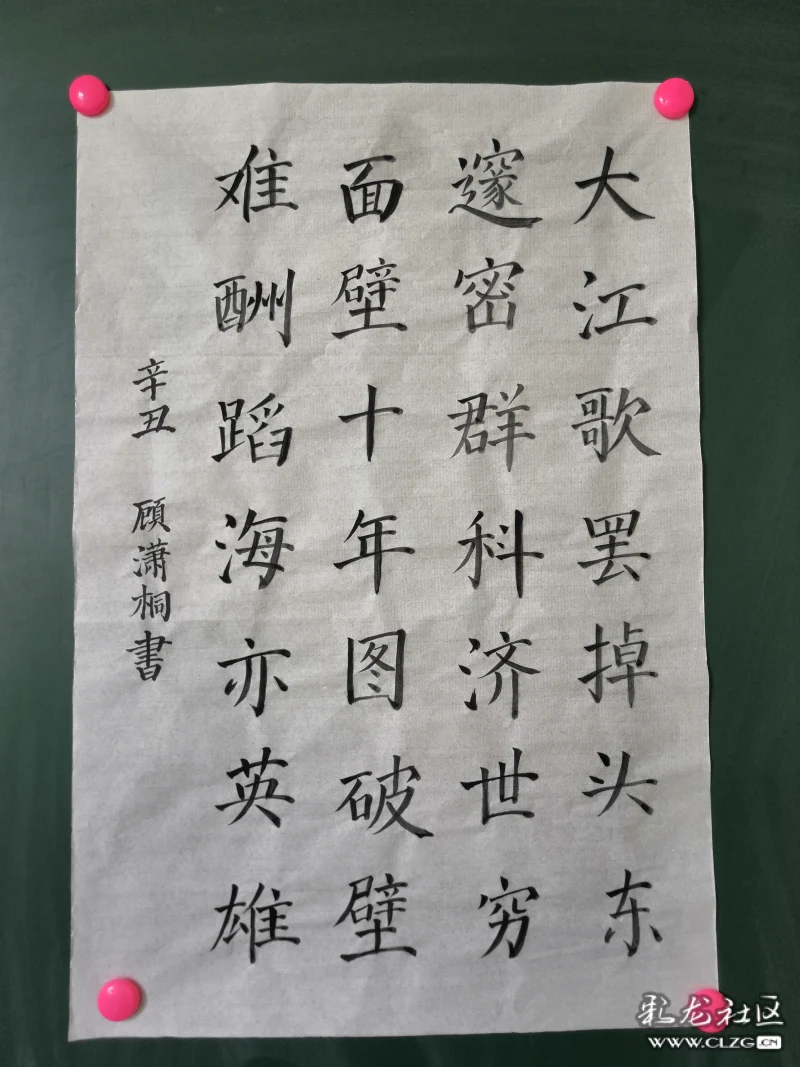 大江歌罢掉头东
邃密群科济世穷
面壁十年图破壁
难酬蹈海亦英雄
辛丑 顾潇桐书
彩龙社区
WWW.CLZG.CN